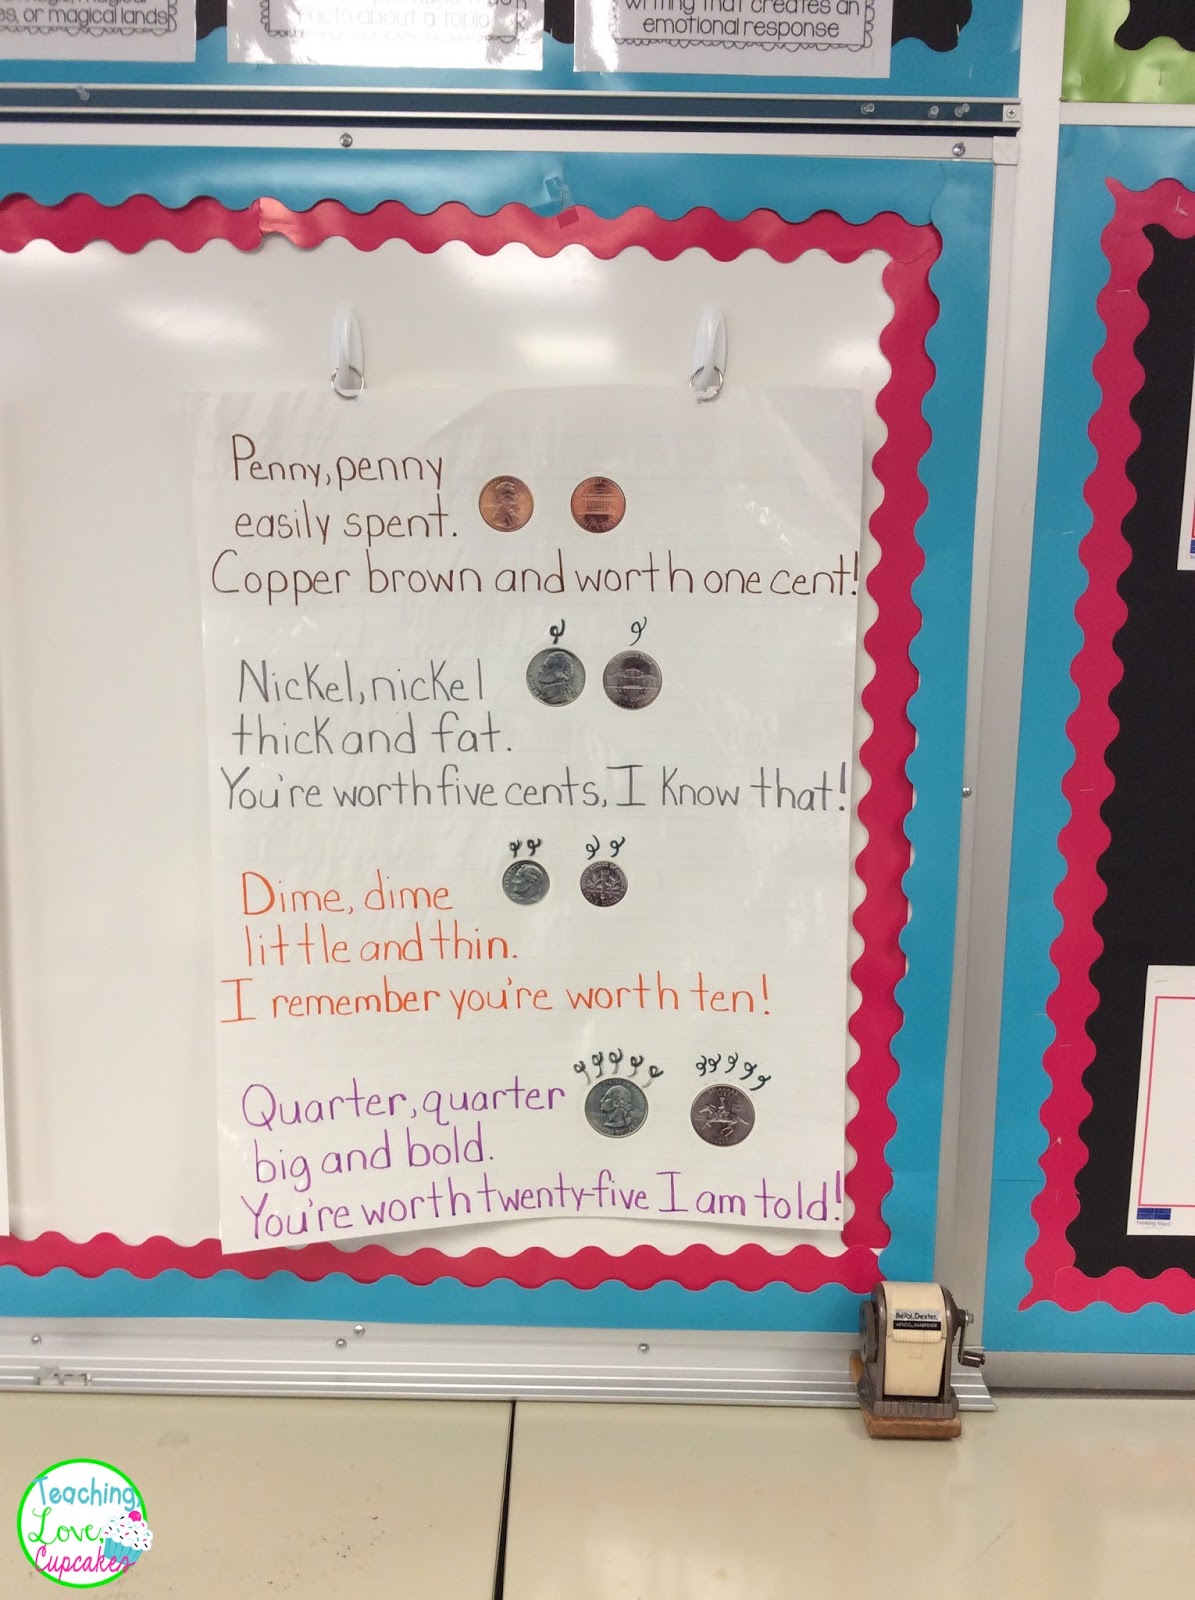 es, or magical lands
facts about a topic
writing that creates an
emotional response
Penny, penny
easily spent.
Copper brown and worth one cent!
Nickel, nickel
thick and fat.
You're worth five cents, I know that!
Dime, dime
little and thin.
I remember you're worth ten!
Quarter, quarter
big and bold.
You're worth twenty-five I am told!
Teaching,
Love,
Cupcakes